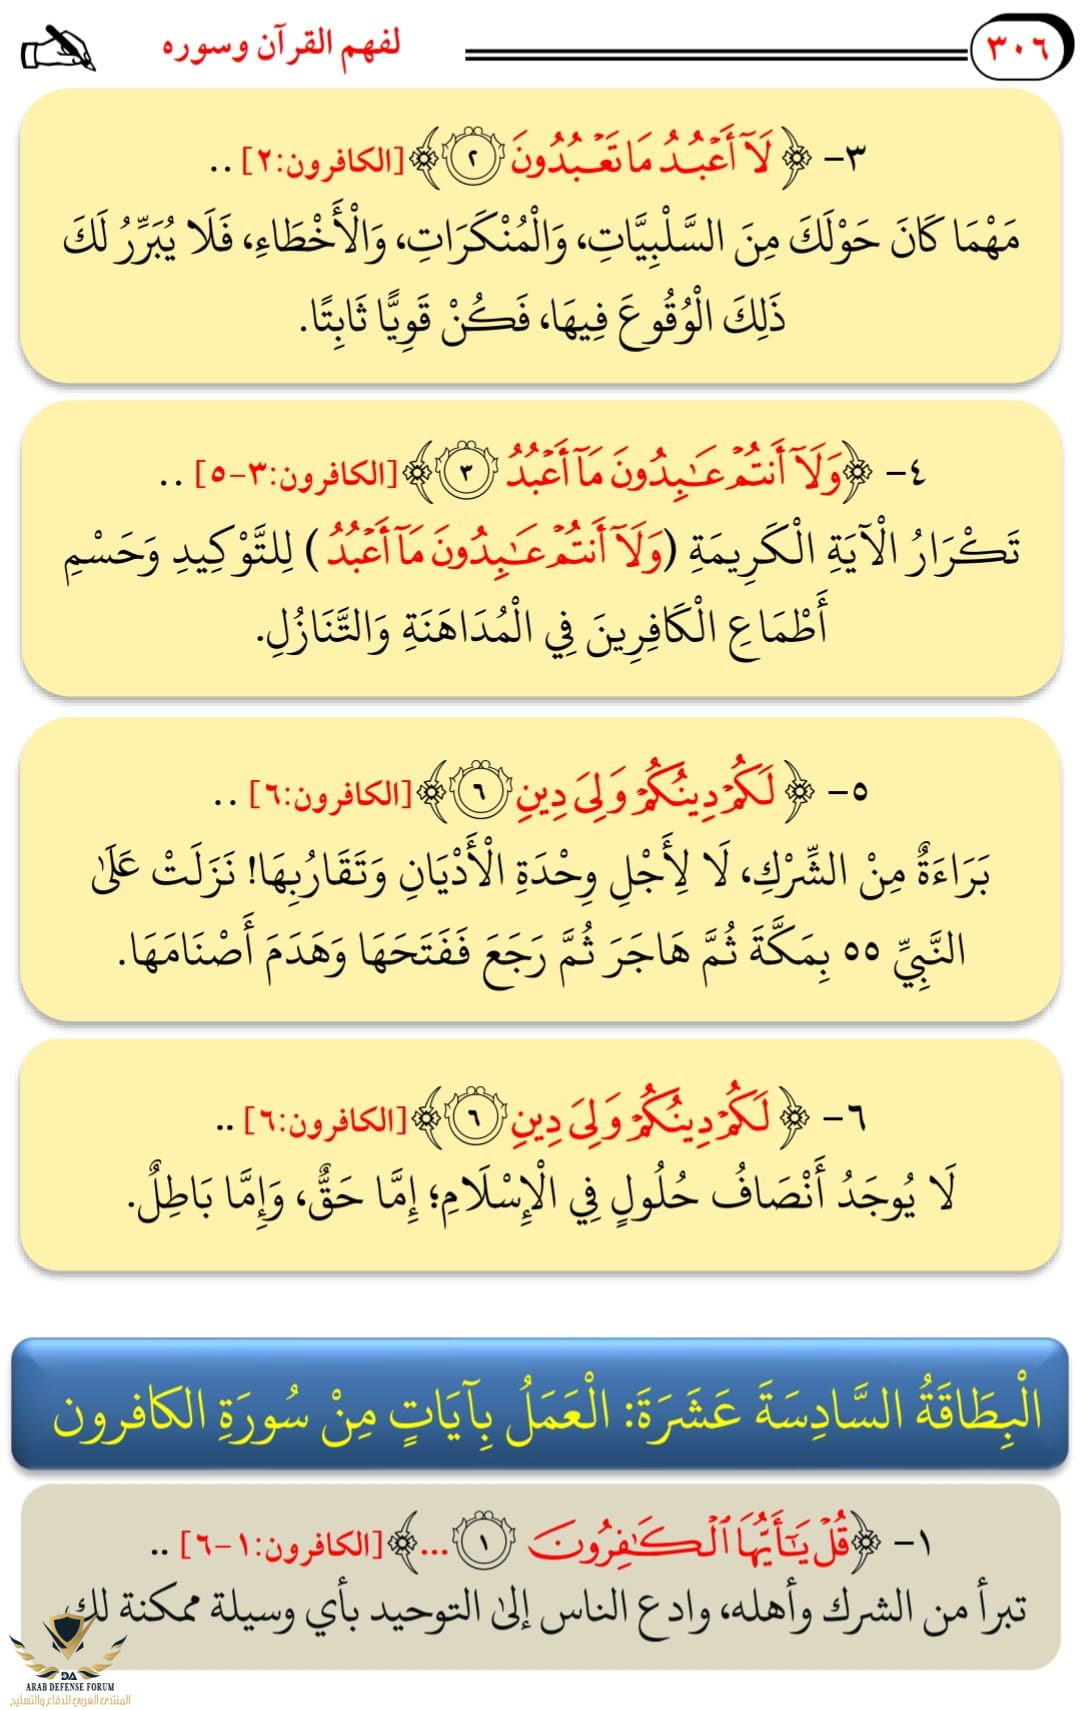 ٣٠٦ لفهم القرآن وسوره
٣- ﴿لَآ أَعۡبُدُ مَا تَعۡبُدُونَ ٢﴾ [الكافرون:٢] ..
مَهْمَا كَانَ حَوْلَكَ مِنَ السَّلْبِيَّاتِ، وَالْمُنْكَرَاتِ، وَالْأَخْطَاءِ، فَلَا يُبَرِّرُ لَكَ
ذَلِكَ الْوُقُوعَ فِيهَا، فَكُنْ قَوِيًّا ثَابِتًا.
٤- ﴿وَلَآ أَنتُمۡ عَٰبِدُونَ مَآ أَعۡبُدُ ٣﴾ [الكافرون:٣-٥] ..
تَكْرَارُ الْآيَةِ الْكَرِيمَةِ (وَلَآ أَنتُمۡ عَٰبِدُونَ مَآ أَعۡبُدُ) لِلتَّوْكِيدِ وَحَسْمِ
أَطْمَاعِ الْكَافِرِينَ فِي الْمُدَاهَنَةِ وَالتَّنَازُلِ.
٥- ﴿لَكُمۡ دِينُكُمۡ وَلِيَ دِينِ ٦﴾ [الكافرون:٦] ..
بَرَاءَةٌ مِنْ الشِّرْكِ، لَا لِأَجْلِ وِحْدَةِ الْأَدْيَانِ وَتَقَارُبِهَا! نَزَلَتْ عَلَىٰ
النَّبِيِّ ٥٥ بِمَكَّةَ ثُمَّ هَاجَرَ ثُمَّ رَجَعَ فَفَتَحَهَا وَهَدَمَ أَصْنَامَهَا.
٦- ﴿لَكُمۡ دِينُكُمۡ وَلِيَ دِينِ ٦﴾ [الكافرون:٦] ..
لَا يُوجَدُ أَنْصَافُ حُلُولٍ فِي الْإِسْلَامِ؛ إِمَّا حَقٌّ، وَإِمَّا بَاطِلٌ.
الْبِطَاقَةُ السَّادِسَةَ عَشَرَةَ: الْعَمَلُ بِآيَاتٍ مِنْ سُورَةِ الكافرون
١- ﴿قُلۡ يَٰٓأَيُّهَا ٱلۡكَٰفِرُونَ ١ ...﴾ [الكافرون:١-٦] ..
تبرأ من الشرك وأهله، وادع الناس إلىٰ التوحيد بأي وسيلة ممكنة لك
DA
ARAB DEFENSE FORUM
المنتدى العربي للدفاع والتسليح